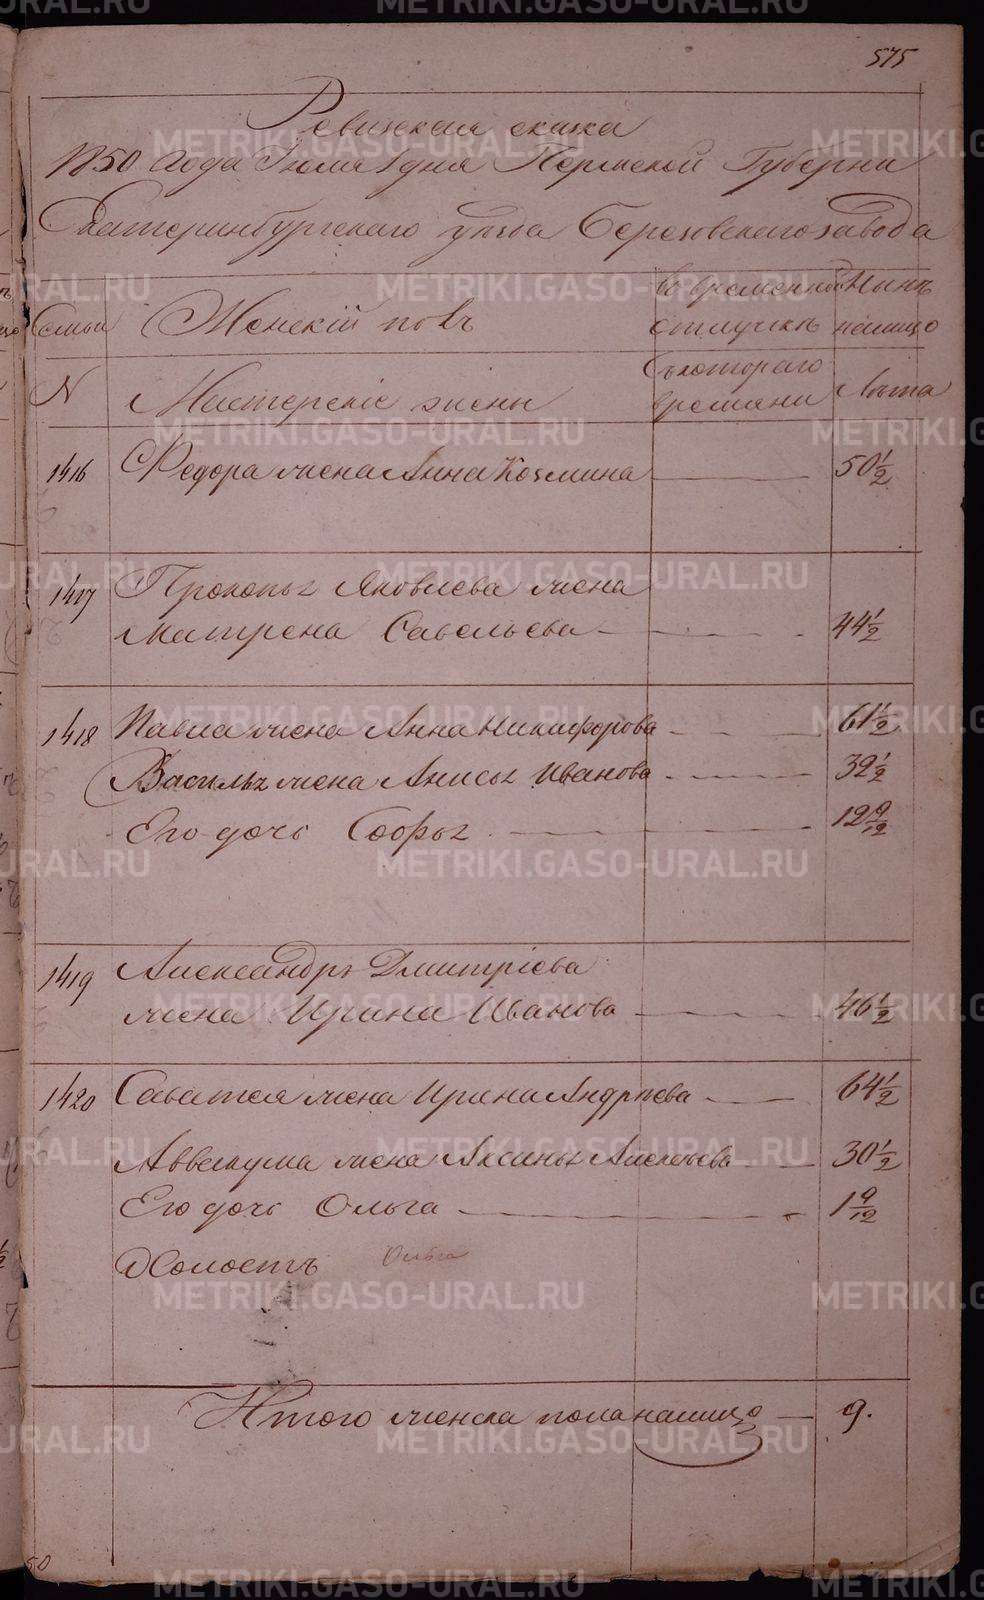 575
Ревизская сказка
1850 года Іюля 1 дня Пермской Губерни
Екатеринбургскаго уѣзда Березовскаго завода
Семьи
Женскій полъ
Во временной отлучкѣ
Нынѣ на лицо
N
Мастерскіе жены
Съ котораго времяни
Лѣта
1416 Федора жена Анна Козмина 50 1/2
1417 Прокопья Яковлева жена
Матрена Савельева 44 1/2
1418 Павла жена Анна Никифорова 61 1/2
Василья жена Анисья Иванова 32 1/2
Его дочь Софья 12 9/12
1419 Александра Дмитріева
жена Ирина Иванова 46 1/2
1420 Саватея жена Ирина Андрѣева 64 1/2
Аввакума жена Аксинья Алексѣева 30 1/2
Его дочь Ольга 1 9/12
Холостъ Ольга
Итого женска пола на лицо 9.
50
METRIKI.GASO-URAL.RU